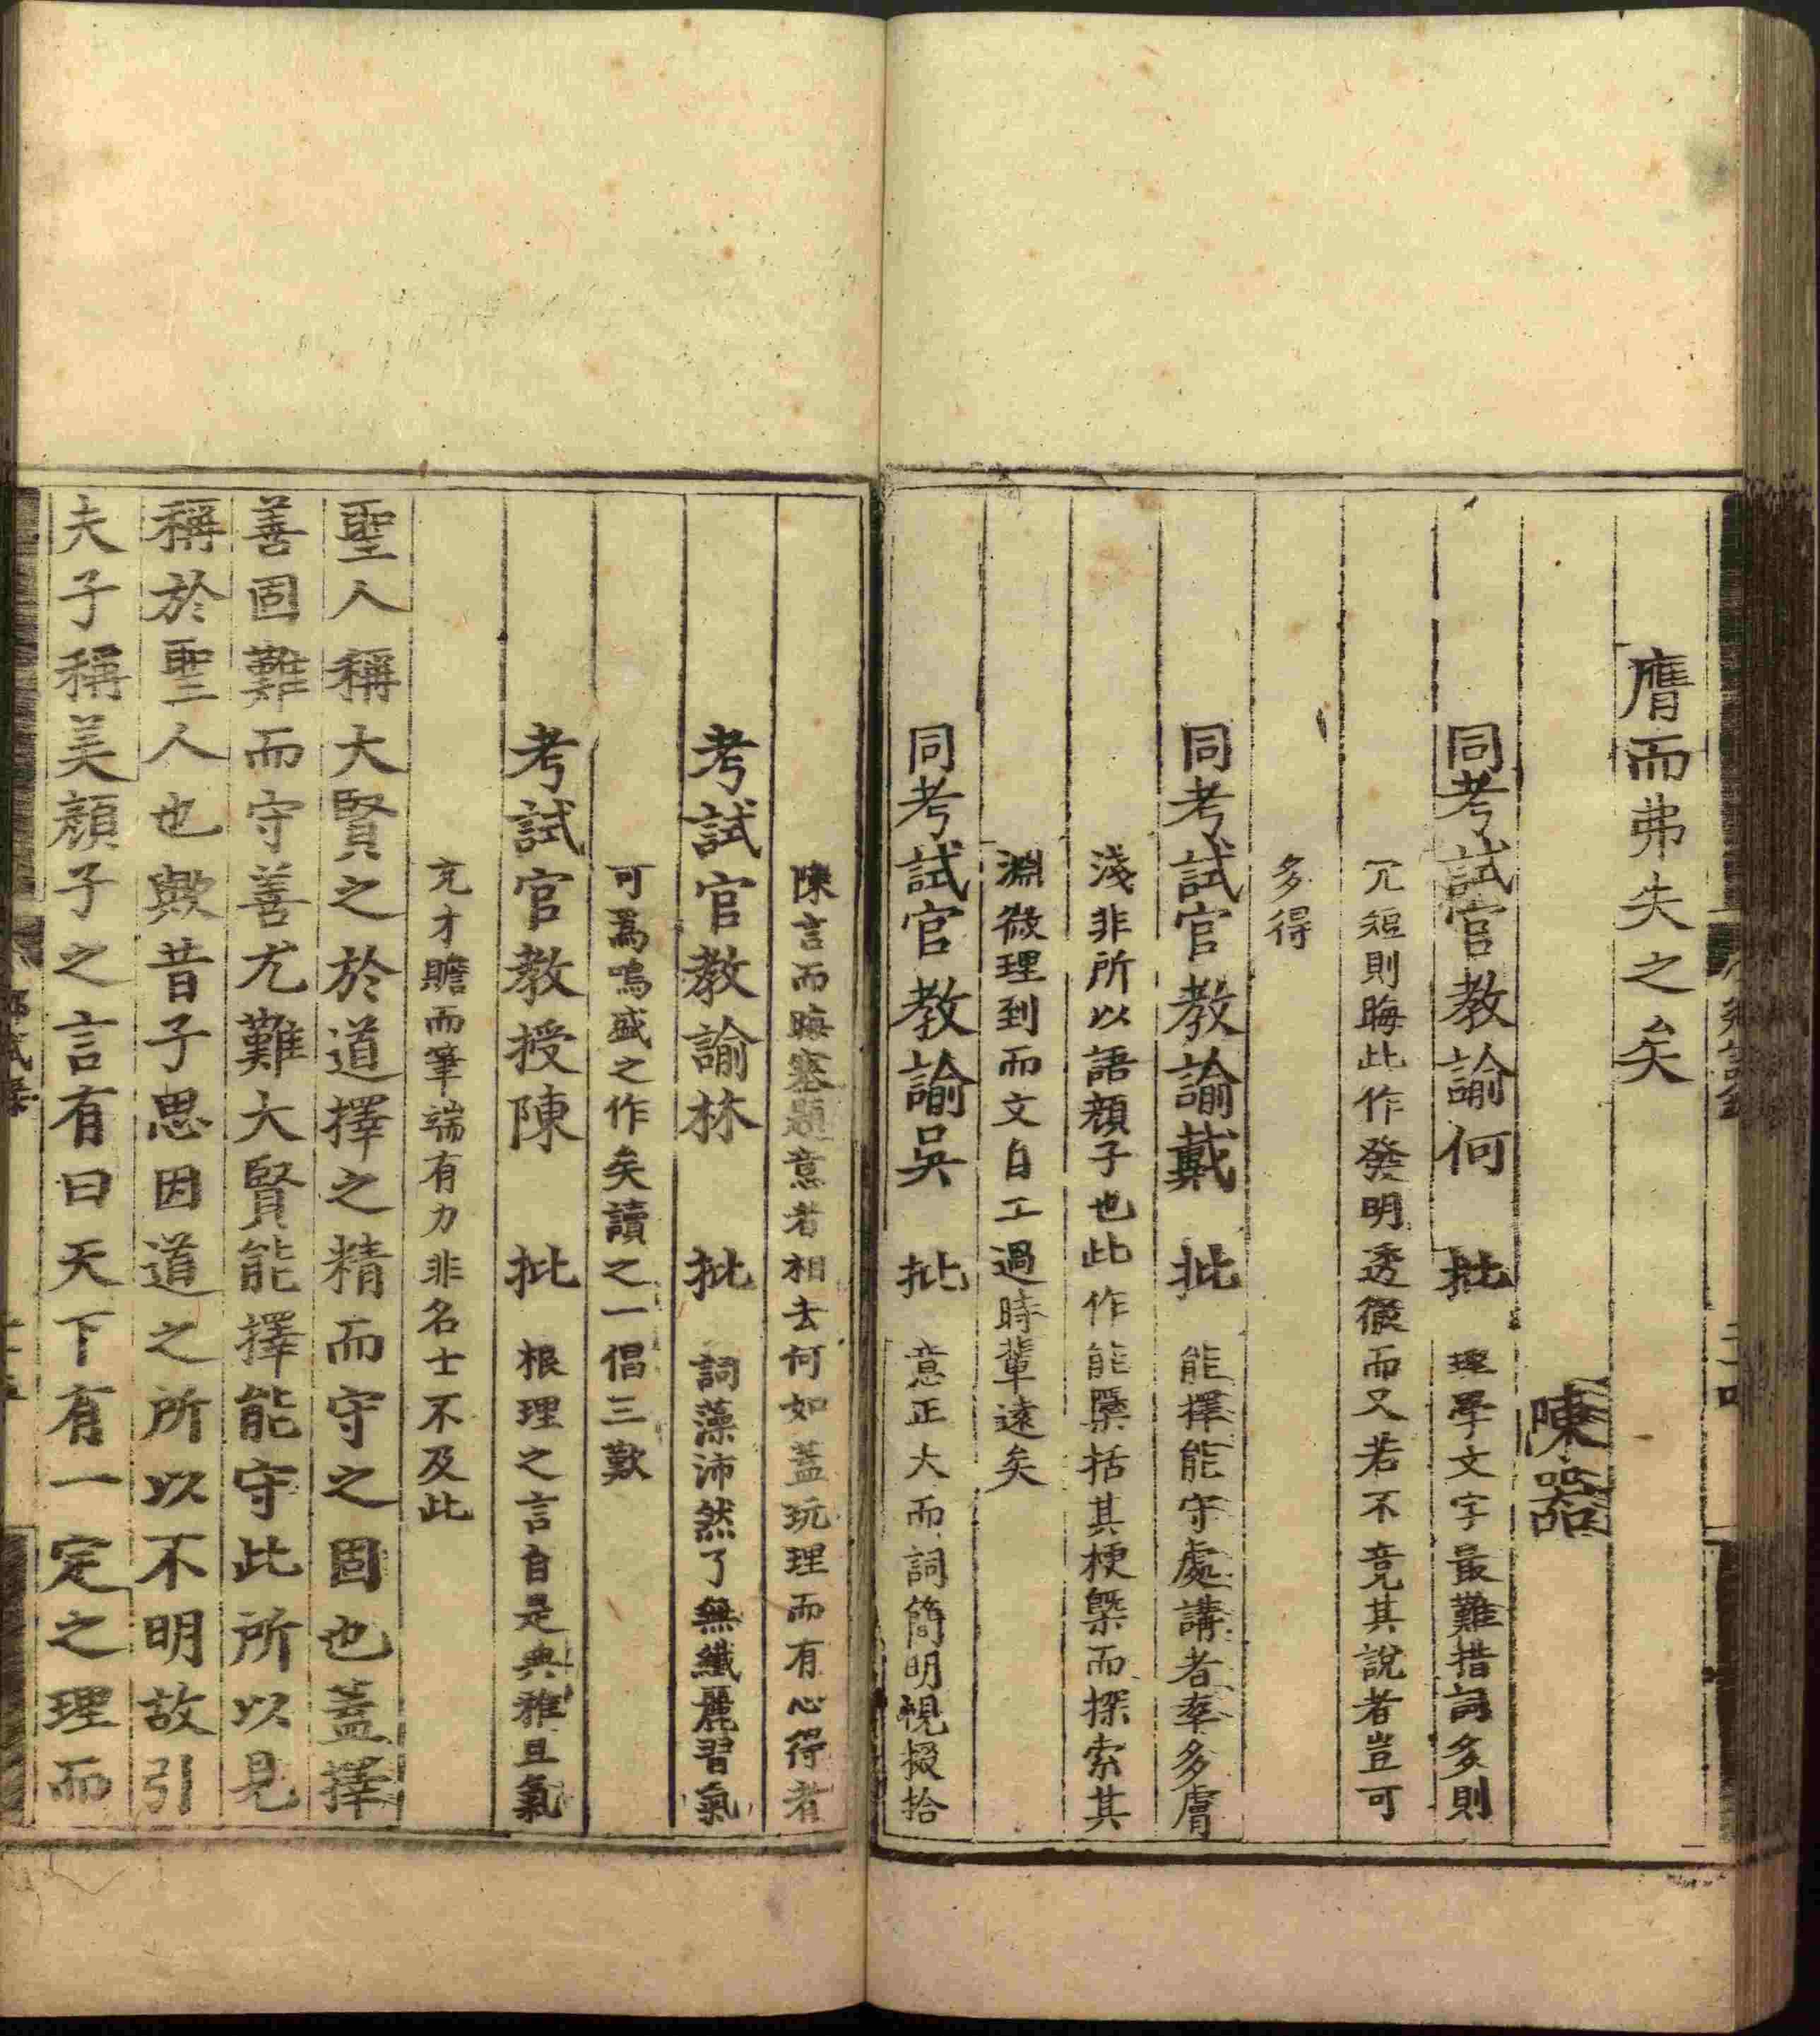 膺而弗失之矣
陳器
同考試官教諭何 批 理學文字最難措詞多則
冗短則晦此作發明透徹而又若不竟其說者豈可
多得
同考試官教諭戴 批 能擇能守處講者率多膚
淺非所以語顏子也此作能檃括其梗槩而探索其
淵微理到而文自工過時輩遠矣
同考試官教諭吳 批 意正大而詞簡明視掇拾
陳言而晦塞題意者相去何如蓋玩理而有心得者
考試官教諭林 批 詞藻沛然了無纖麗習氣
可為鳴盛之作矣讀之一倡三歎
考試官教授陳 批 根理之言自是典雅且氣
充才贍而筆端有力非名士不及此
聖人稱大賢之於道擇之精而守之固也蓋擇
善固難而守善尤難大賢能擇能守此所以見
稱於聖人也歟昔子思因道之所以不明故引
夫子稱美顏子之言有曰天下有一定之理而